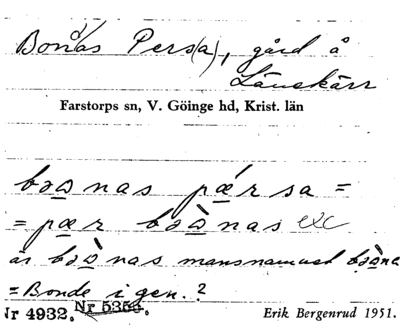 Bonas Pers(a), gård å
Länskärr
Farstorps sn, V. Göinge hd, Krist. län
bɔɷnas pǽrsa =
= pær bɔɷ̀nas exc
är bɔɷ̀nas mansnamnet bɔɷ̀na
= Bonde i gen.?
Nr 4932. Nr 5356.
Erik Bergenrud 1951.